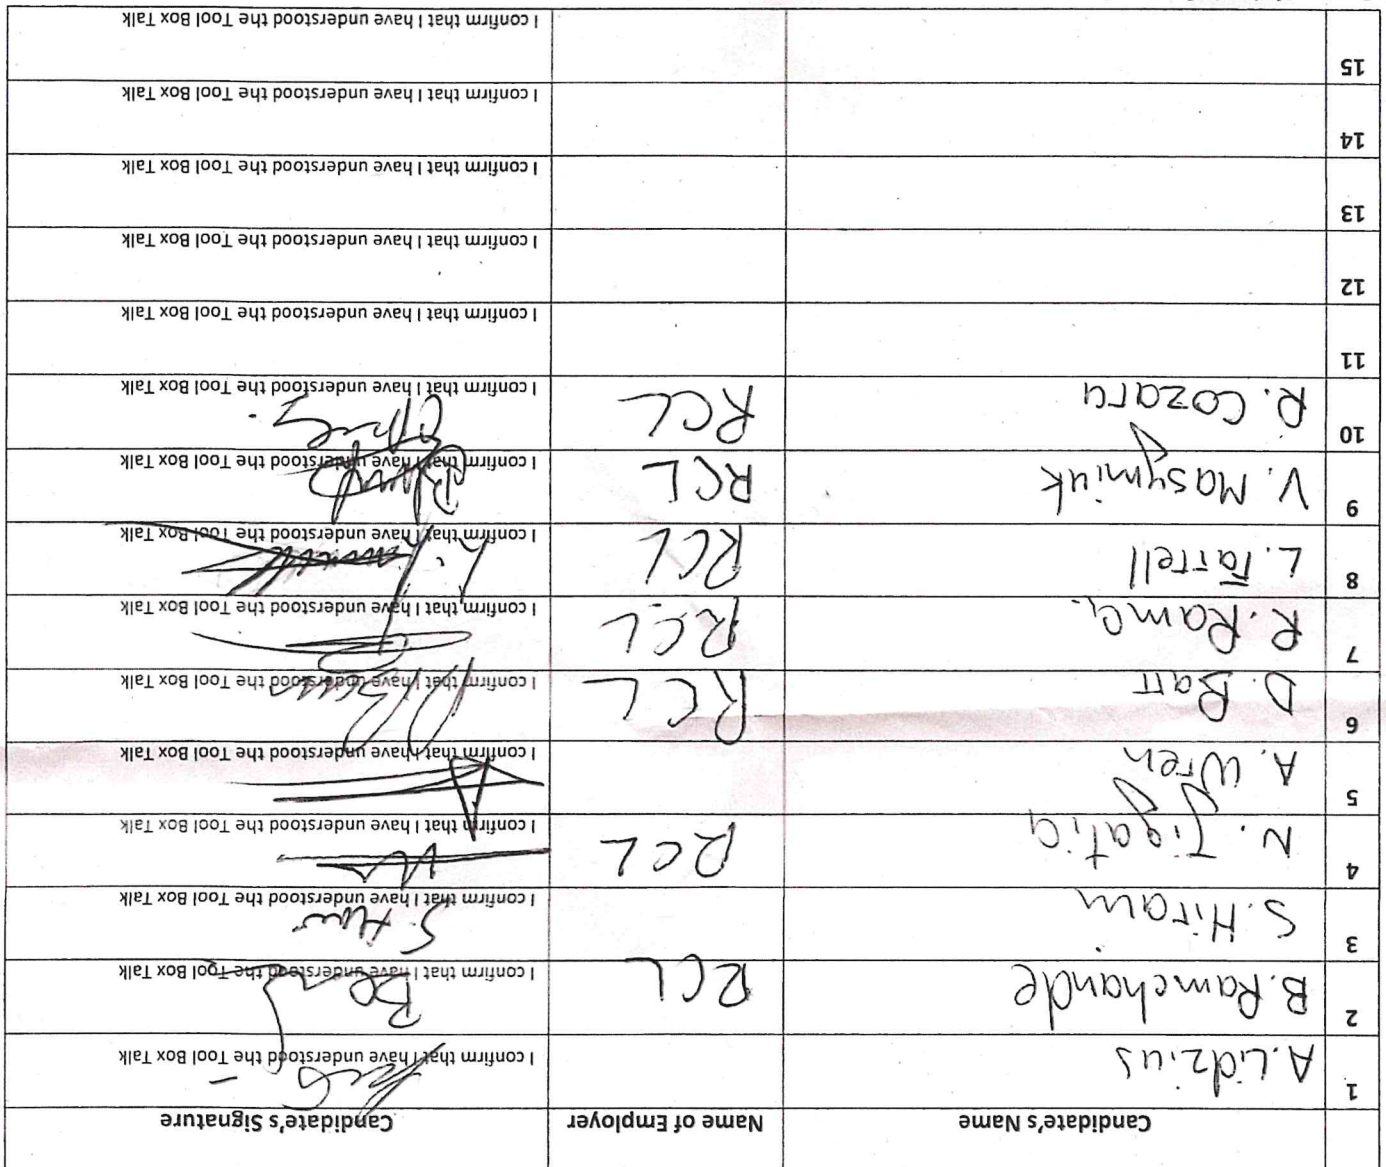 Candidate's Name Name of Employer Candidate's Signature
1 A. Lidzius I confirm that I have understood the Tool Box Talk
2 B. Ramchande RCL I confirm that I have understood the Tool Box Talk
3 S. Hiram S. Hiram I confirm that I have understood the Tool Box Talk
4 N. Jigatia RCL I confirm that I have understood the Tool Box Talk
5 A. Wren I confirm that I have understood the Tool Box Talk
6 D. Barr RCL I confirm that I have understood the Tool Box Talk
7 R. Rama. RCL I confirm that I have understood the Tool Box Talk
8 L. Farrell RCL I confirm that I have understood the Tool Box Talk
9 V. Masymiuk RCL I confirm that I have understood the Tool Box Talk
10 R. Cozaru RCL I confirm that I have understood the Tool Box Talk
11 I confirm that I have understood the Tool Box Talk
12 I confirm that I have understood the Tool Box Talk
13 I confirm that I have understood the Tool Box Talk
14 I confirm that I have understood the Tool Box Talk
15 I confirm that I have understood the Tool Box Talk